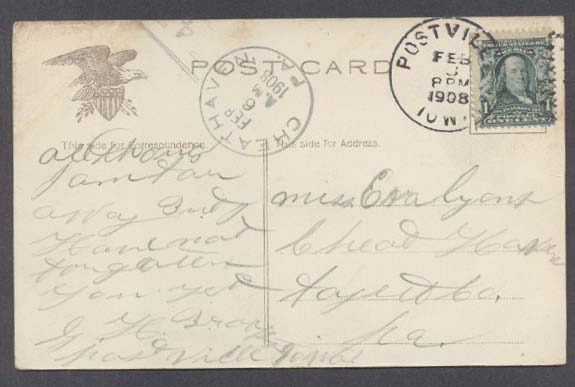 POST CARD
POSTVIL
FEB
8 PM
1908
IOW
CHEATHAVEN PA
FEB
6
A M
1908
1
This side for Correspondence.
This side for Address.
although
I am far
away But I
Have not
forgotten
you yet
G H. Brooks
Miss Eva Lyons
Chead Haven
Fayett Co.
Pa.